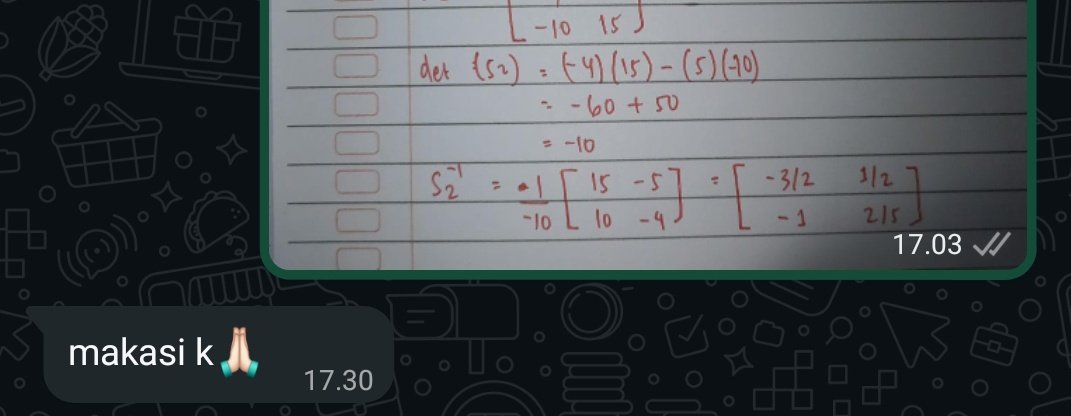 -10 15
det (S2) = (-4)(15) - (5)(-10)
= -60 + 50
= -10
S2^-1 = 1/-10 [15 -5; 10 -4] = [-3/2 1/2; -1 2/5]
17.03
makasi k🙏🏻
17.30